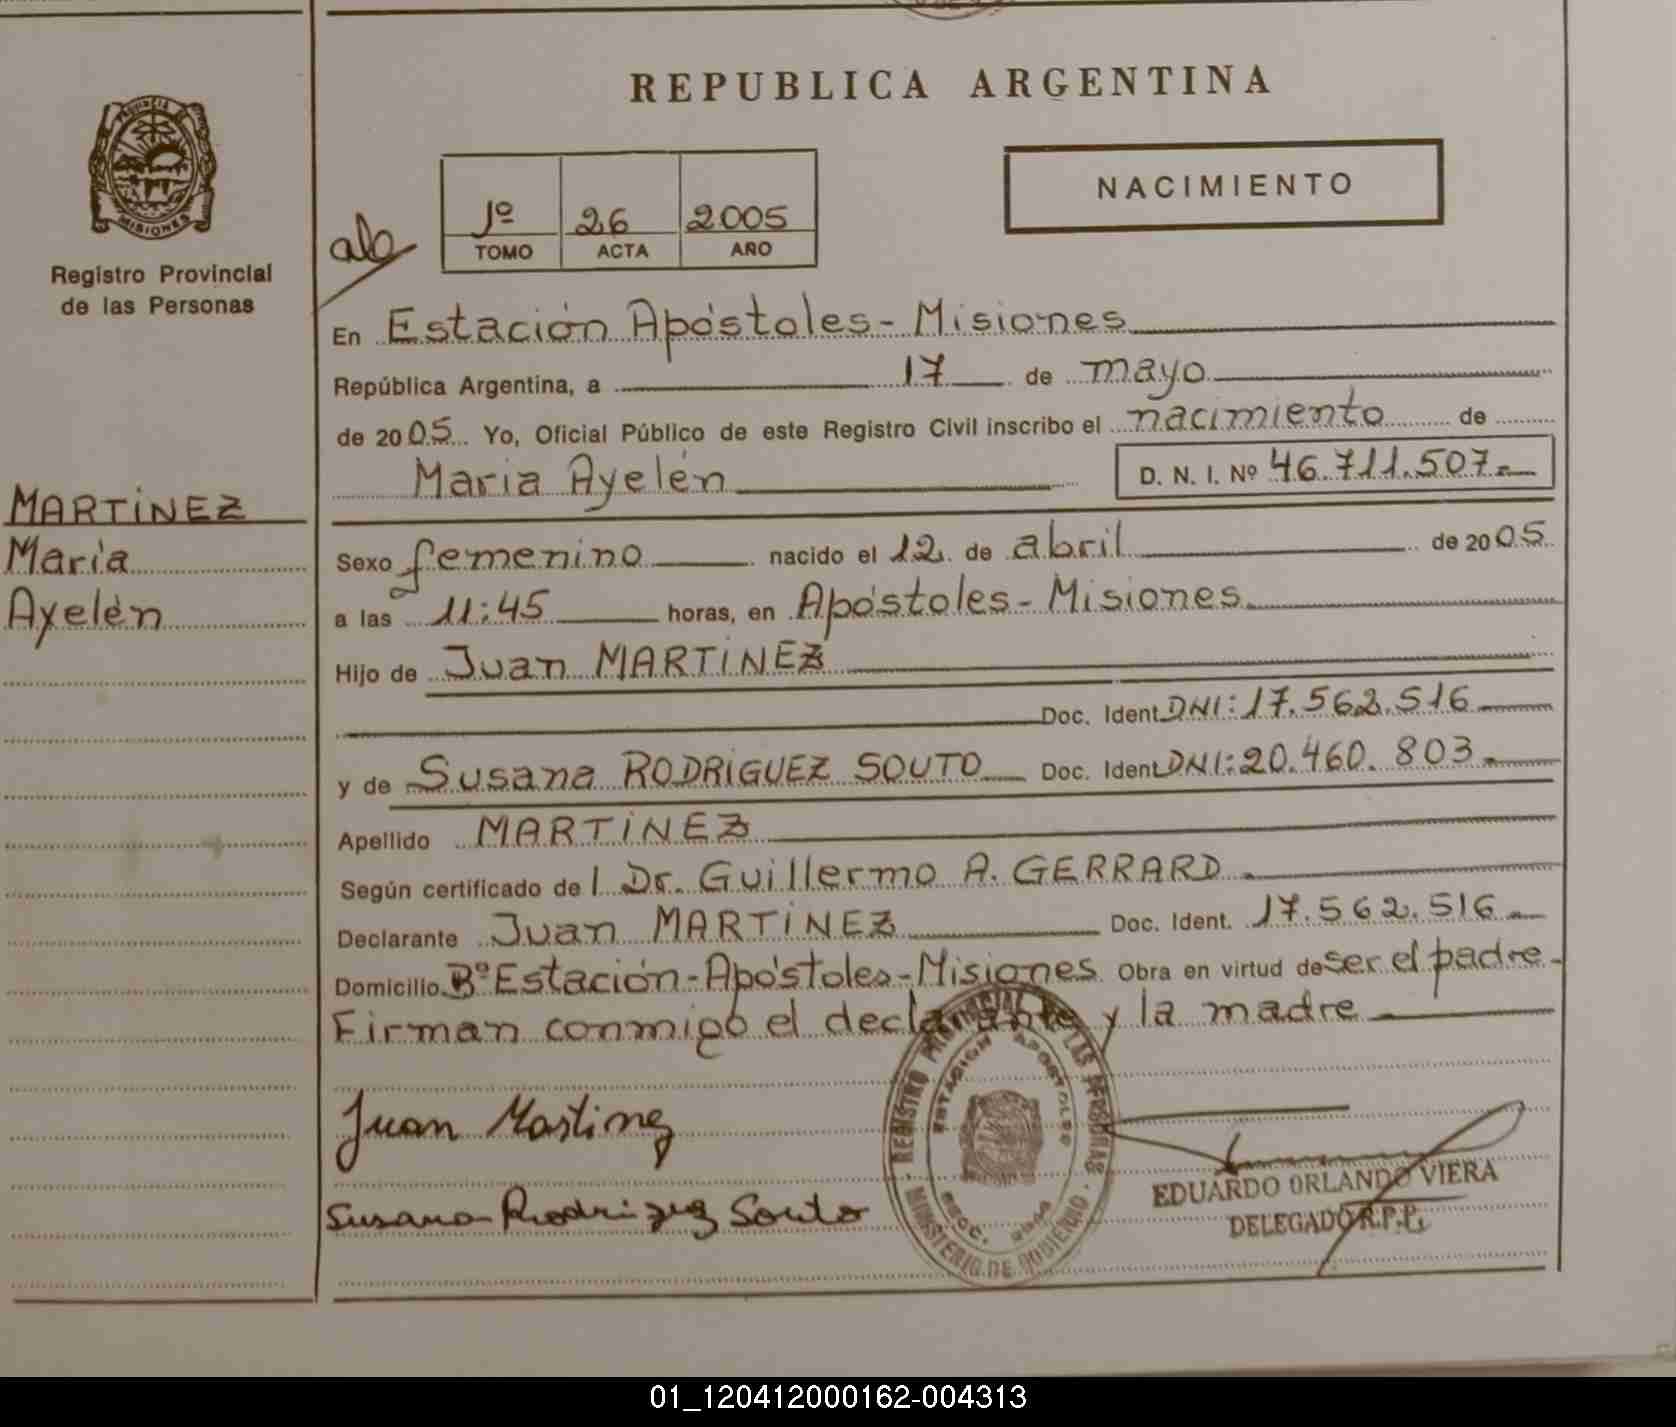 REPUBLICA ARGENTINA
PROVINCIA
MISIONES
Registro Provincial
de las Personas
NACIMIENTO
1º 26 2005
TOMO ACTA AÑO
En Estación Apóstoles - Misiones
República Argentina, a 17 de mayo
de 2005 Yo, Oficial Público de este Registro Civil inscribo el nacimiento de
Maria Ayelén D. N. I. Nº 46.711.507.-
MARTINEZ
María
Ayelén
Sexo femenino nacido el 12 de abril de 2005
a las 11:45 horas, en Apóstoles - Misiones
Hijo de Juan MARTINEZ
Doc. Ident. DNI: 17.562.516
y de Susana RODRIGUEZ SOUTO Doc. Ident. DNI: 20.460.803.
Apellido MARTINEZ
Según certificado del Dr. Guillermo A. GERRARD
Declarante Juan MARTINEZ Doc. Ident. 17.562.516
Domicilio Bº Estación - Apóstoles - Misiones Obra en virtud de ser el padre.
Firman conmigo el declarante y la madre
Juan Martinez
Susana Rodriguez Souto
REGISTRO PROVINCIAL DE LAS PERSONAS
ESTACION APOSTOLES
MINISTERIO DE GOBIERNO
EDUARDO ORLANDO VIERA
DELEGADO R.P.P.
01_120412000162-004313